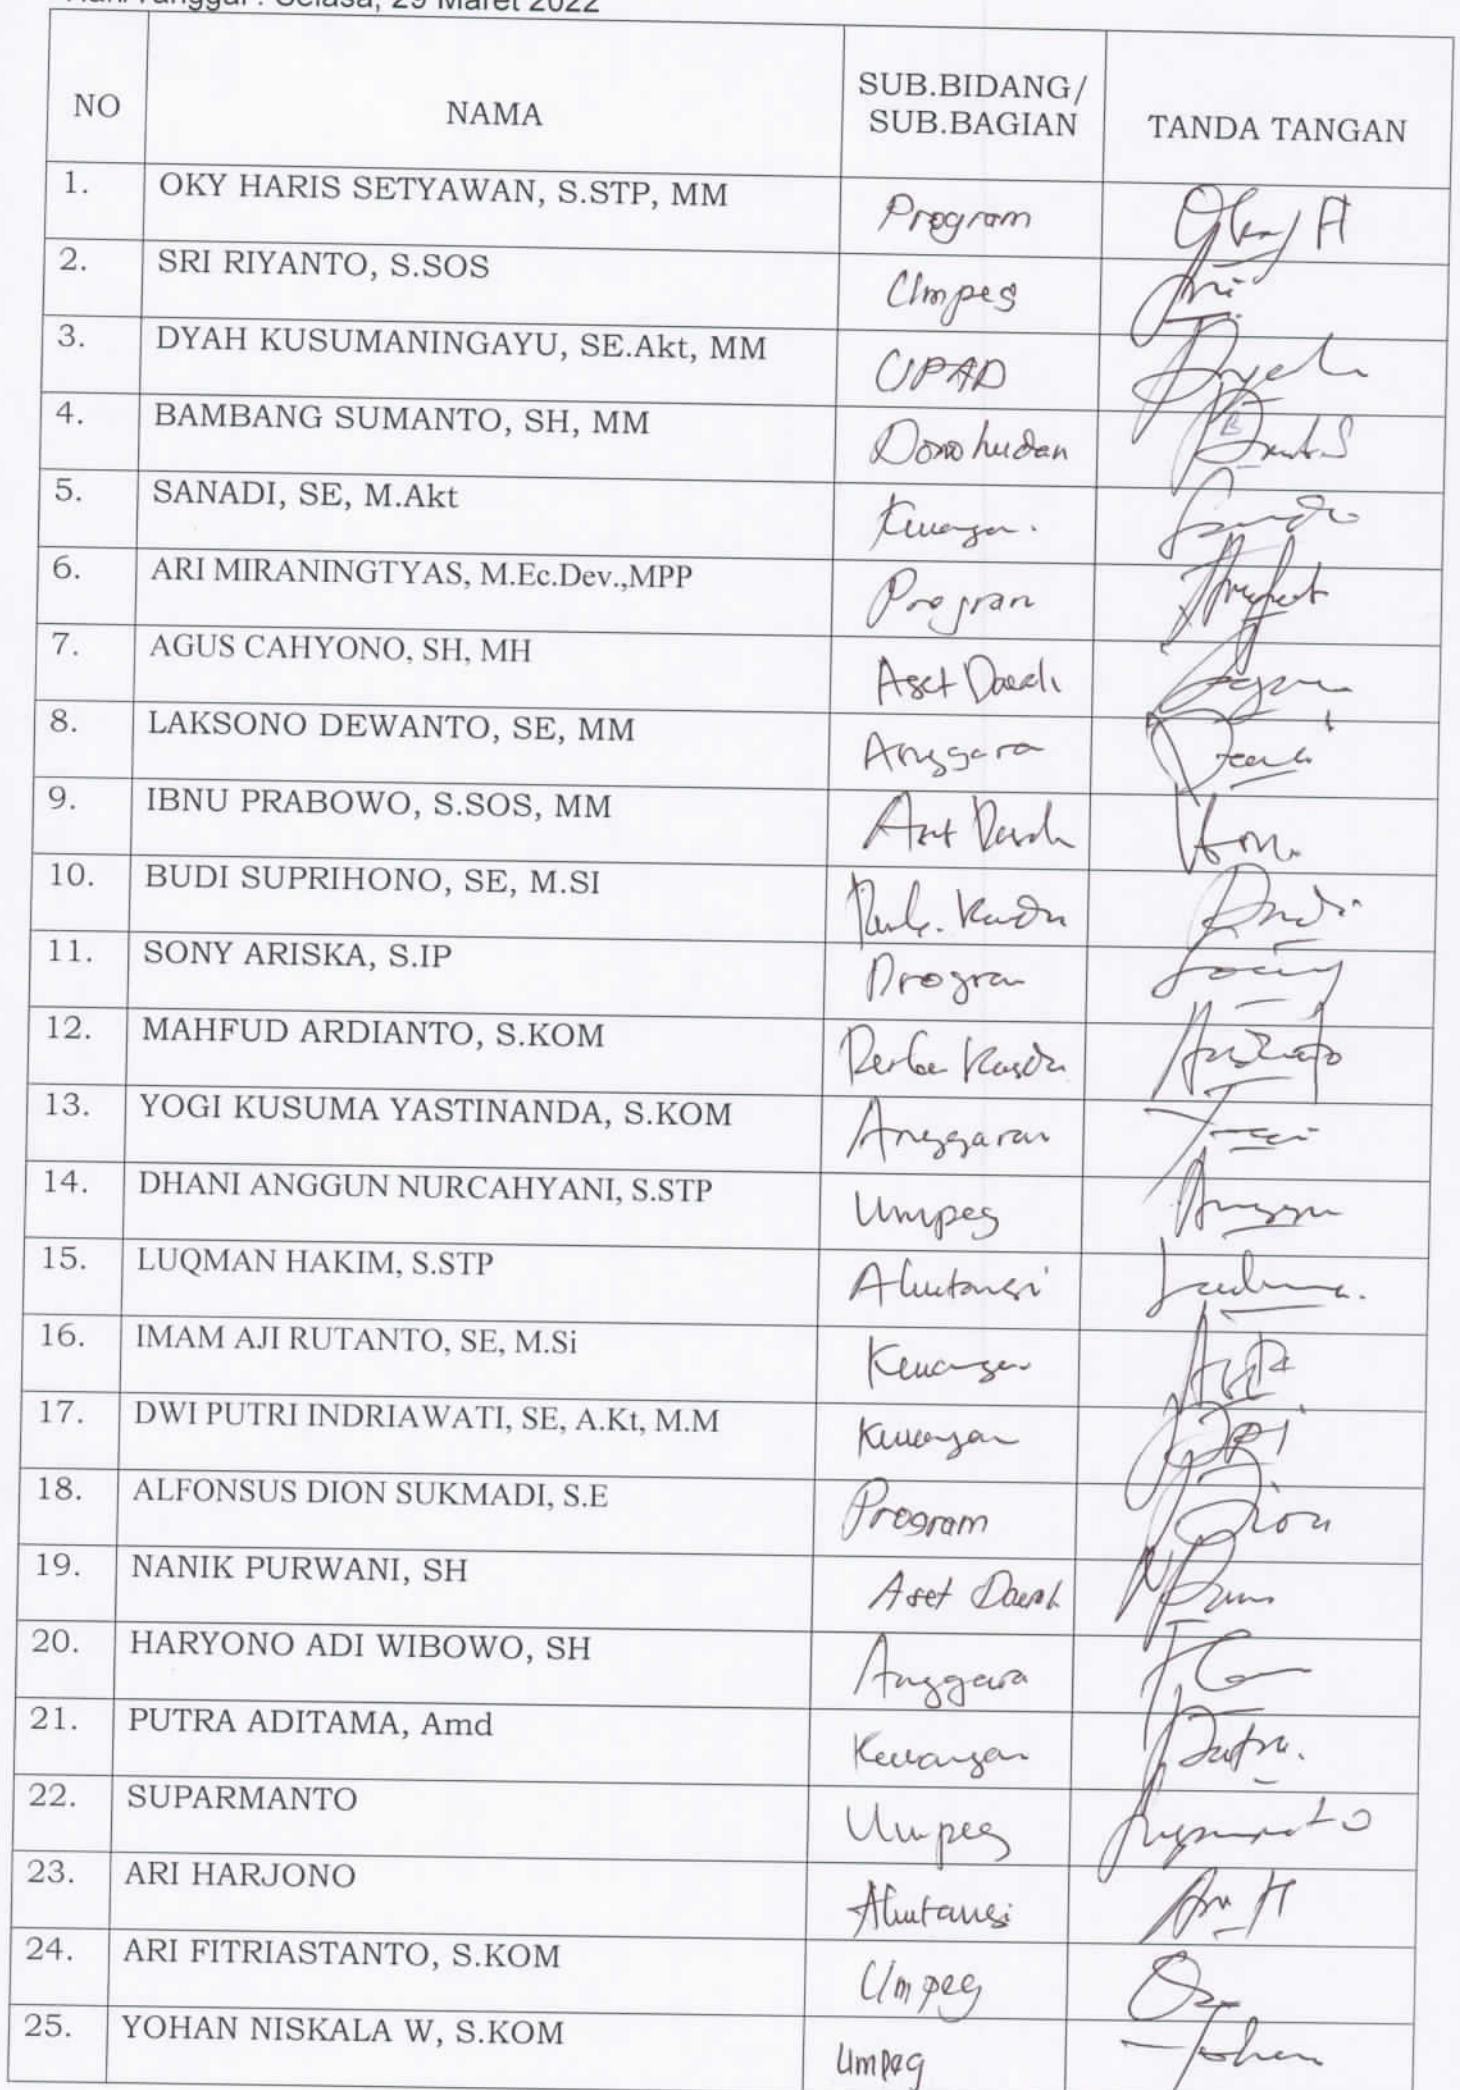 Hari/Tanggal : Selasa, 29 Maret 2022
NO NAMA SUB.BIDANG/ SUB.BAGIAN TANDA TANGAN
1. OKY HARIS SETYAWAN, S.STP, MM Program
2. SRI RIYANTO, S.SOS Umpeg
3. DYAH KUSUMANINGAYU, SE.Akt, MM UPAD
4. BAMBANG SUMANTO, SH, MM Donohudan
5. SANADI, SE, M.Akt Keuangan.
6. ARI MIRANINGTYAS, M.Ec.Dev.,MPP Program
7. AGUS CAHYONO, SH, MH Aset Daerah
8. LAKSONO DEWANTO, SE, MM Anggara
9. IBNU PRABOWO, S.SOS, MM Aset Daerah
10. BUDI SUPRIHONO, SE, M.SI Kasda
11. SONY ARISKA, S.IP Program
12. MAHFUD ARDIANTO, S.KOM Kasda
13. YOGI KUSUMA YASTINANDA, S.KOM Anggaran
14. DHANI ANGGUN NURCAHYANI, S.STP Umpeg
15. LUQMAN HAKIM, S.STP Akutansi
16. IMAM AJI RUTANTO, SE, M.Si Keuangan
17. DWI PUTRI INDRIAWATI, SE, A.Kt, M.M Keuangan
18. ALFONSUS DION SUKMADI, S.E Program Dion
19. NANIK PURWANI, SH Aset Daerah
20. HARYONO ADI WIBOWO, SH Anggara
21. PUTRA ADITAMA, Amd Keuangan Putra.
22. SUPARMANTO Umpeg
23. ARI HARJONO Akutansi Ari H
24. ARI FITRIASTANTO, S.KOM Umpeg
25. YOHAN NISKALA W, S.KOM Umpeg Yohan